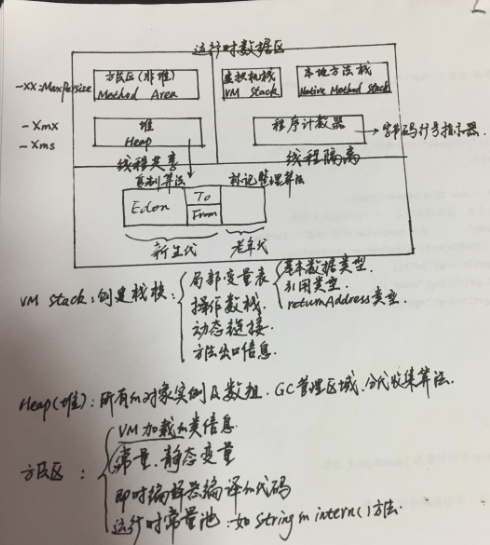 运行时数据区
方法区(非堆) 虚拟机栈 本地方法栈
-XX:MaxPersize Method Area VM Stack Native Method Stack
-Xmx 堆 程序计数器 → 字节码行号指示器.
-Xms Heap
线程共享 线程隔离
复制算法 标记整理算法
Eden To
From
新生代 老年代
VM Stack:创建栈桢: 局部变量表 基本数据类型.
操作数栈. 引用类型.
动态链接. returnAddress类型.
方法出口信息.
Heap(堆):所有的对象实例及数组.GC管理区域.分代收集算法.
VM加载的类信息.
常量.静态变量
方法区: 即时编译器编译的代码
运行时常量池:如String的intern()方法.